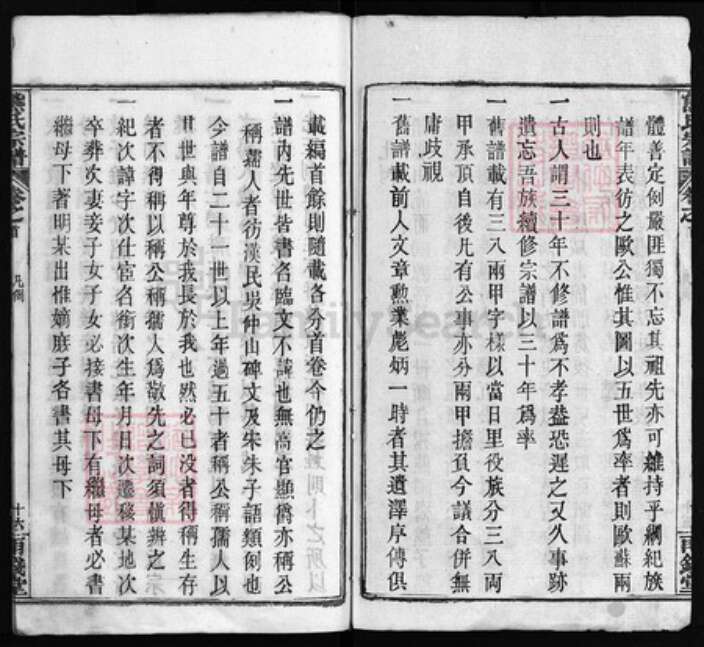 體善定例嚴匪獨不忘其祖先亦可維持乎綱紀族
譜年表彷之歐公惟其圖以五世爲率者則歐蘇兩
則也
一古人謂三十年不修譜爲不孝葢恐遲之又久事跡
遺忘吾族續修宗譜以三十年爲率
一舊譜載有三八兩甲字樣以當日里役族分三八兩
甲承頂自後凡有公事亦分兩甲擔負今議合併無
庸歧視
一舊譜載前人文章勲業彪炳一時者其遺澤序傳俱
載編首餘則隨載各分首卷今仍之
一譜內先世皆書名臨文不諱也無高官顯爵亦稱公
稱孺人者彷漢民吳仲山碑文及宋朱子語類例也
今譜自二十一世以上年過五十者稱公稱孺人以
其世與年尊於我長於我也然必已没者得稱生存
者不得稱以稱公稱孺人爲敬先之詞須愼辨之
一紀次諱字次仕宦名銜次生年月日次遷移某地次
卒葬次妻妾子女子女必接書母下有繼母者必書
繼母下著明某出惟嫡庶子各書其母下
熊氏宗譜
卷之首
凡例
十六
FamilySearch